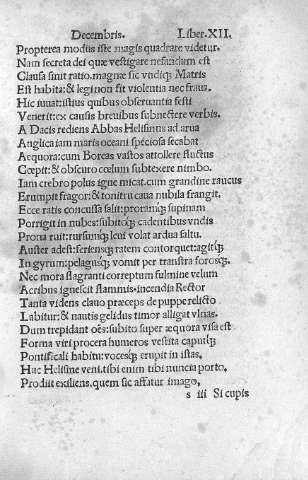 Decembris. Liber.XII.
Propterea modus iste magis quadrare videtur.
Nam secreta dei quæ vestigare nefandum est
Clausa sinit ratio. magnæ sic vndiq; Matris
Est habita: & legi non sit violentia nec fraus.
Hic iuuat istius quibus obseruantia festi
Venerit: ex causis breuibus subnectere verbis.
A Dacis rediens Abbas Helsinus ad arua
Anglica iam maris oceani speciosa secabat
Aequora: cum Boreas vastos attollere fluctus
Cœpit: & obscuro cœlum subtexere nimbo.
Iam crebro polus igne micat. cum grandine raucus
Erumpit fragor: & tonitru caua nubila frangit.
Ecce ratis concussa salit: proramq; supinam
Porrigit in nubes: subitoq; cadentibus vndis
Prona ruit: rursumq; leui volat ardua saltu.
Auster adest: feriensq; ratem contorquet: agitq;
In gyrum: pelagusq; vomit per transtra forosq;.
Nec mora flagranti correptum fulmine velum
Acribus ignescit flammis. incendia Rector
Tanta videns clauo præceps de puppe relicto
Labitur: & nautis gelidus timor alligat vlnas.
Dum trepidant oēs: subito super æquora visa est
Forma viri procera humeros vestita caputq;
Pontificali habitu: vocesq; erupit in istas.
Huc Helsine veni. tibi enim tibi nuncia porto.
Prodiit exiliens. quem sic affatur imago,
s iii Si cupis